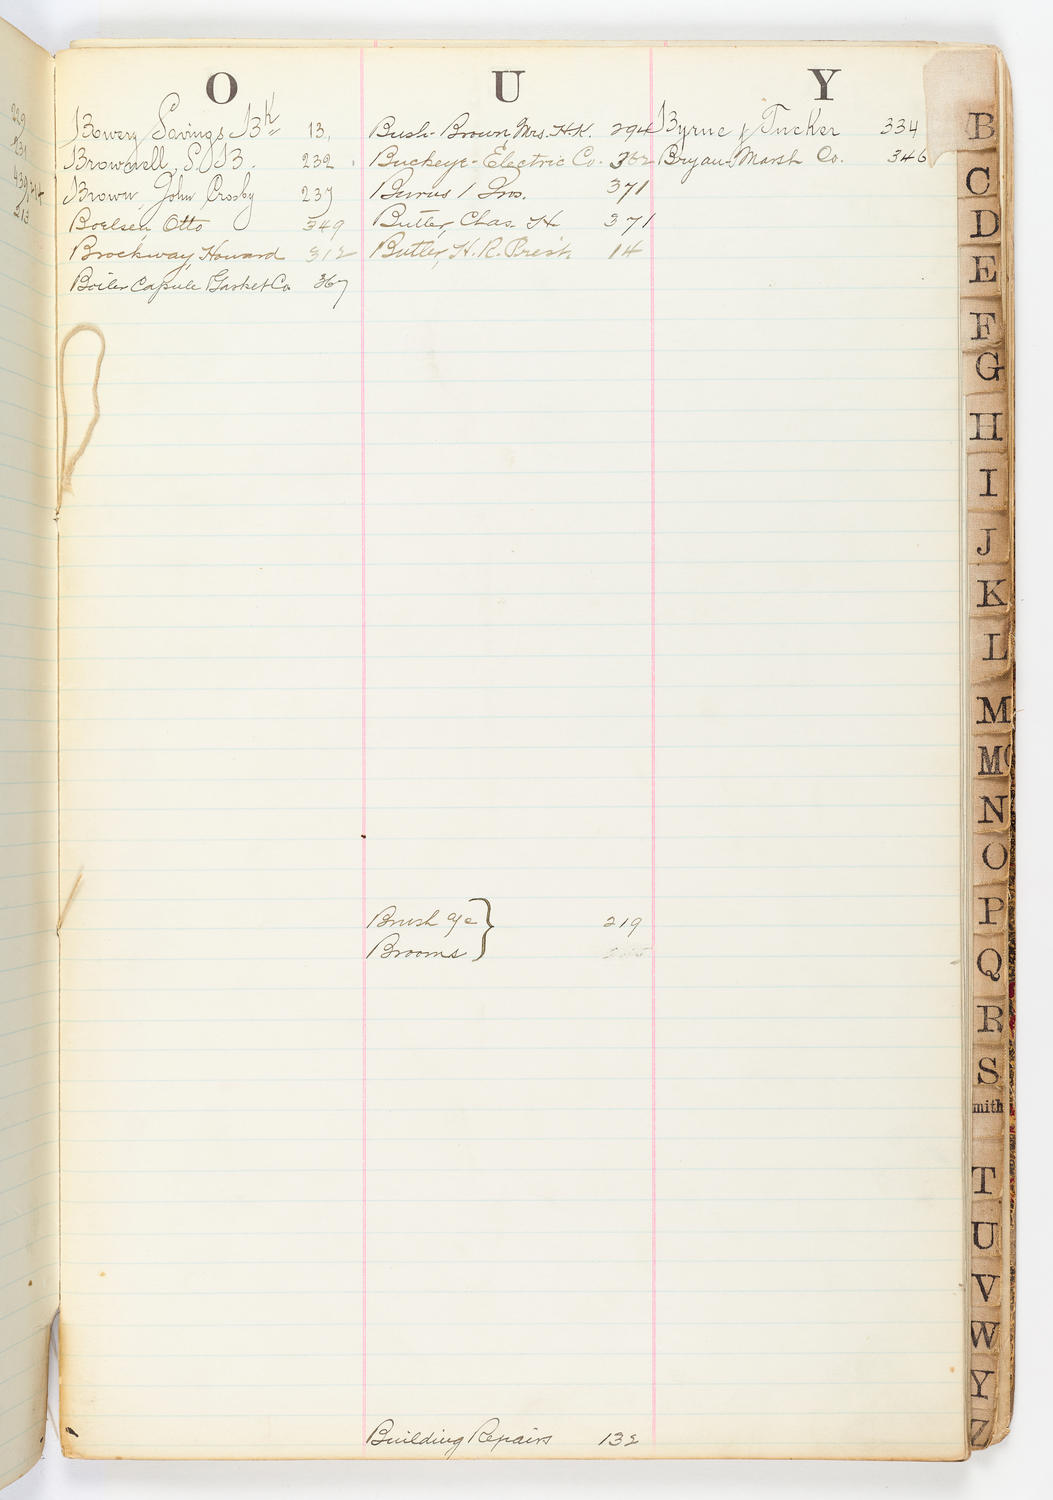 O
Bowery Savings Bk 13,
Brownell, S. B. 232
Brown, John Crosby 237
Boelsen, Otto 349
Brockway, Howard 312
Boiler Capsule Gasket Co 367
U
Bush-Brown, Mrs. H.K. 294
Buckeye-Electric Co. 362
Burns Bros. 371
Butler, Chas. H. 371
Butler, H. R. Presh 14
Brush &c } 219
Brooms
Building Repairs 132
Y
Byrne & Tucker 334
Bryan-Marsh Co. 346
B
C
D
E
F
G
H
I
J
K
L
M
Mc
N
O
P
Q
R
S
mith
T
U
V
W
Y
Z